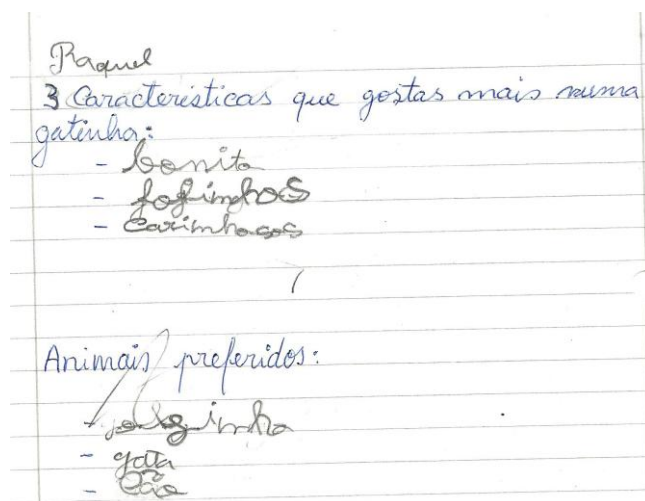 Raquel
3 Caracteristicas que gostas mais numa
gatinha:
- bonita
- fofinhos
- Carinhosos
Animais preferidos:
-
- gata
- Cão